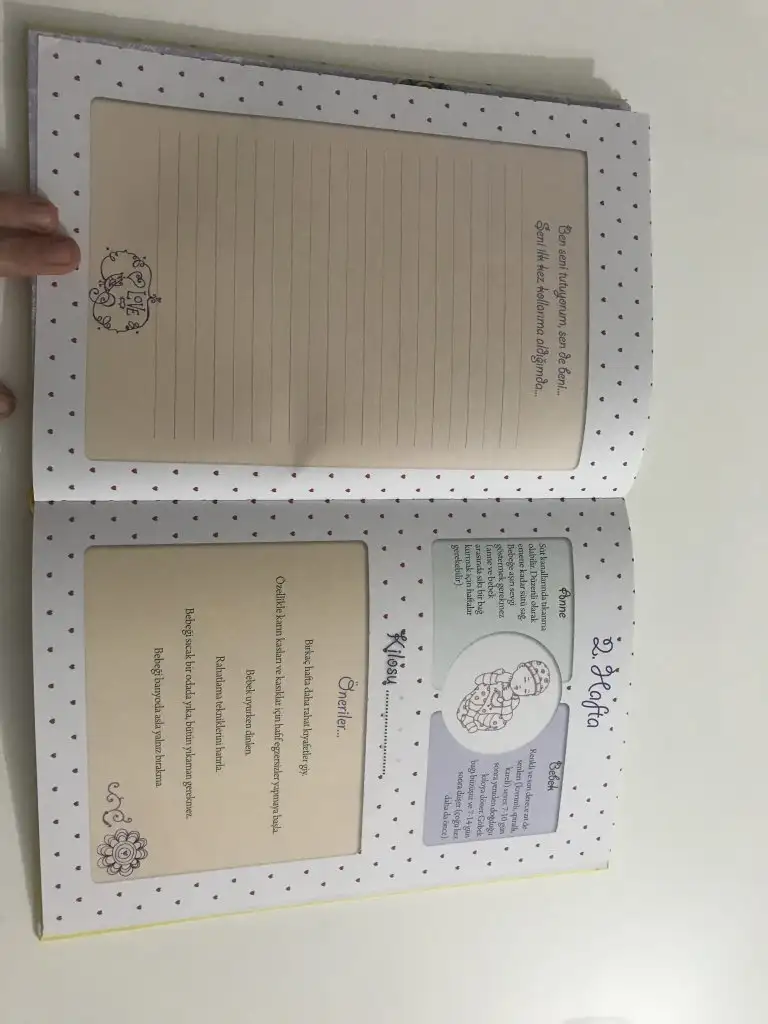 Ben seni tutuyorum, sen de beni...
Seni ilk kez kollarıma aldığımda...
LOVE
2. Hafta
Anne
Süt kanallarında tıkanma
olabilir. Düzenli olarak
emene kadar sütü sağ.
Bebeğe aşırı sevgi
göstermek gerekmez
(anne ve bebek
arasında sıkı bir bağ
kurmak için haftalar
gerekebilir).
Bebek
Renkli ve son derece
sever. 7-10 gün
sonra yeniden doğduğu
kiloya döner. Göbek
bağı büzüşür ve 7-14 gün
sonra düşer (çoğu kez
daha da önce).
Kilosu ....................
Öneriler...
Birkaç hafta daha rahat kıyafetler giy.
Özellikle karın kasları ve kasıklar için hafif egzersizler yapmaya başla.
Bebek uyurken dinlen.
Rahatlama tekniklerini hatırla.
Bebeği sıcak bir odada yıka, bütün yıkaman gerekmez.
Bebeği banyoda asla yalnız bırakma.